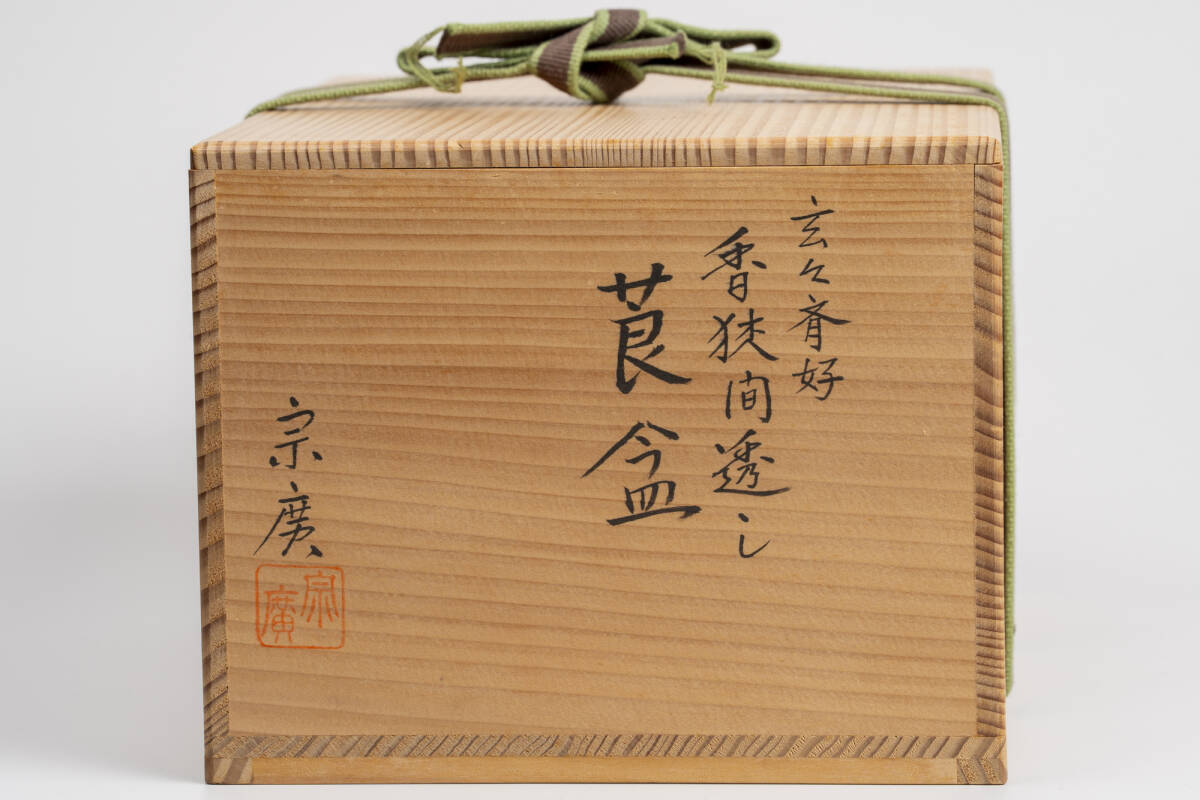 玄々斎好
香狭間透し
莨盆
宗廣
宗廣